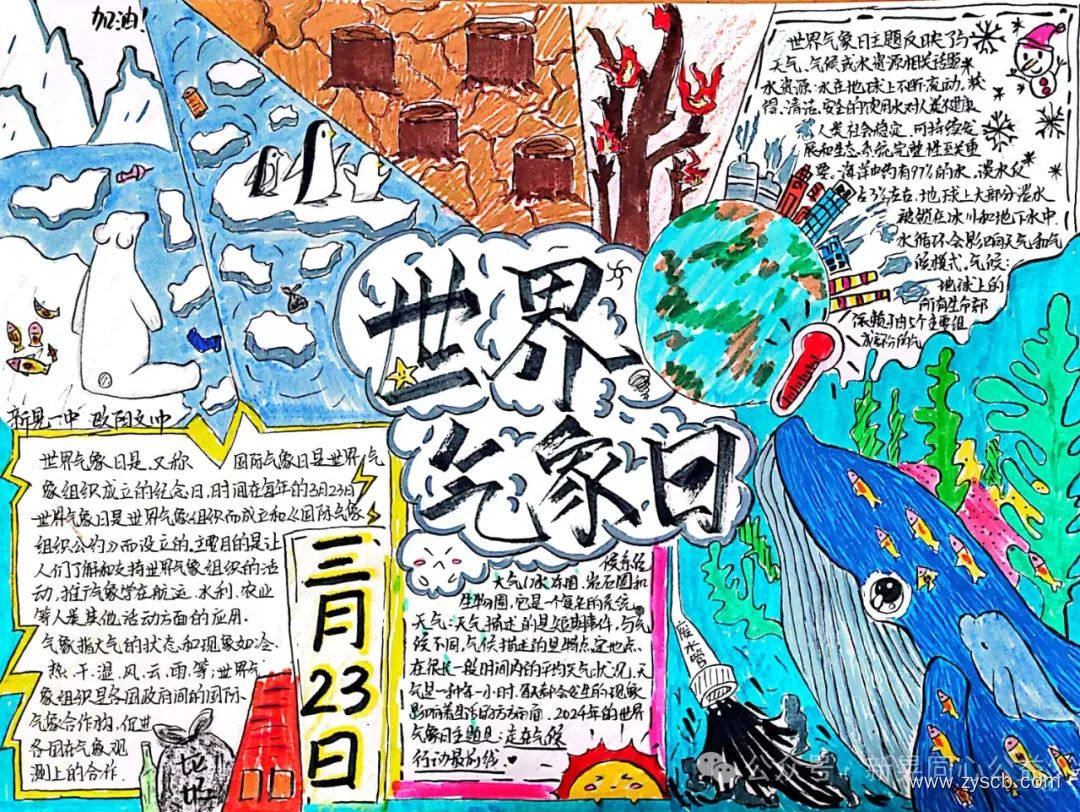 加油！
世界气象日主题反映了与
天气、气候或水资源相关话题
水资源：水在地球上不断流动。获
得、清洁、安全的饮用水对人类健康
人类社会稳定、可持续发
展和生态系统完整性至关重
要。海洋中约有97%的水，淡水仅
占3%左右，地球上大部分淡水
被锁在冰川和地下水中
水循环会影响天气和气
候模式。气候：
地球上的
所有生命都
依赖于由5个主要组
成部分的气
世界
气象日
新晃一中 欧阳文冲
世界气象日是，又称 国际气象日是世界气
象组织成立的纪念日，时间在每年的3月23日
世界气象日是世界气象组织而成立和《国际气象
组织公约》而设立的。主要目的是让
人们了解和支持世界气象组织的活
动，推广气象学在航运、水利、农业
等人类其他活动方面的应用.
气象指大气的状态和现象如冷、
热、干、湿、风、云、雨等；世界气
象组织是各国政府间的国际
气象合作机构，促进
各国在气象观
测上的合作.
三月23日
候系统
大气，冰冻圈，岩石圈和
生物圈，它是一个复杂的系统
天气：天气描述的是短期事件，与气
候不同，气候描述的是特点定地点
在很长一段时间内的平均天气状况，天
气是一种每一小时、每天都会发生的现象
影响着生活的方方面面，2024年的世界
气象日主题是：走在气候
行动最前线
垃圾
废水管
公众号·新晃同心公益
www.zyscb.com